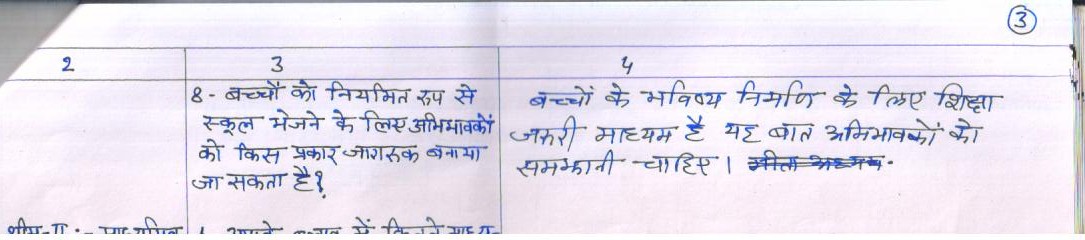 3
2 3 4
8- बच्चों को नियमित रूप से
स्कूल भेजने के लिए अभिभावकों
को किस प्रकार जागरूक बनाया
जा सकता है?
बच्चों के भविष्य निर्माण के लिए शिक्षा
जरूरी माध्यम है यह बात अभिभावकों को
समझानी चाहिए।